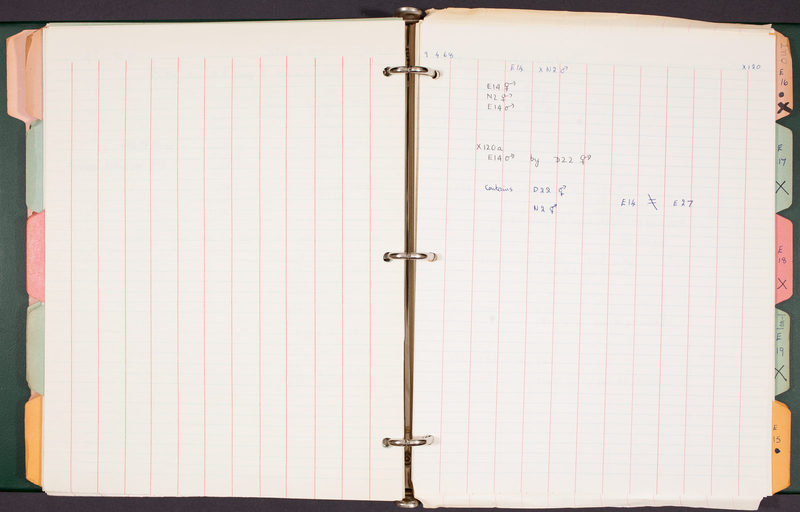 9 4 68
E14 x N2 ♂
X120
E14 ⚥
N2 ⚥
E14 ♂
X120a
E14 ♂ by D22 ⚥
Contains D22 ⚥
N2 ⚥ E14 ≠ E27
E
16
X
E
17
X
E
18
X
E
19
X
E
15